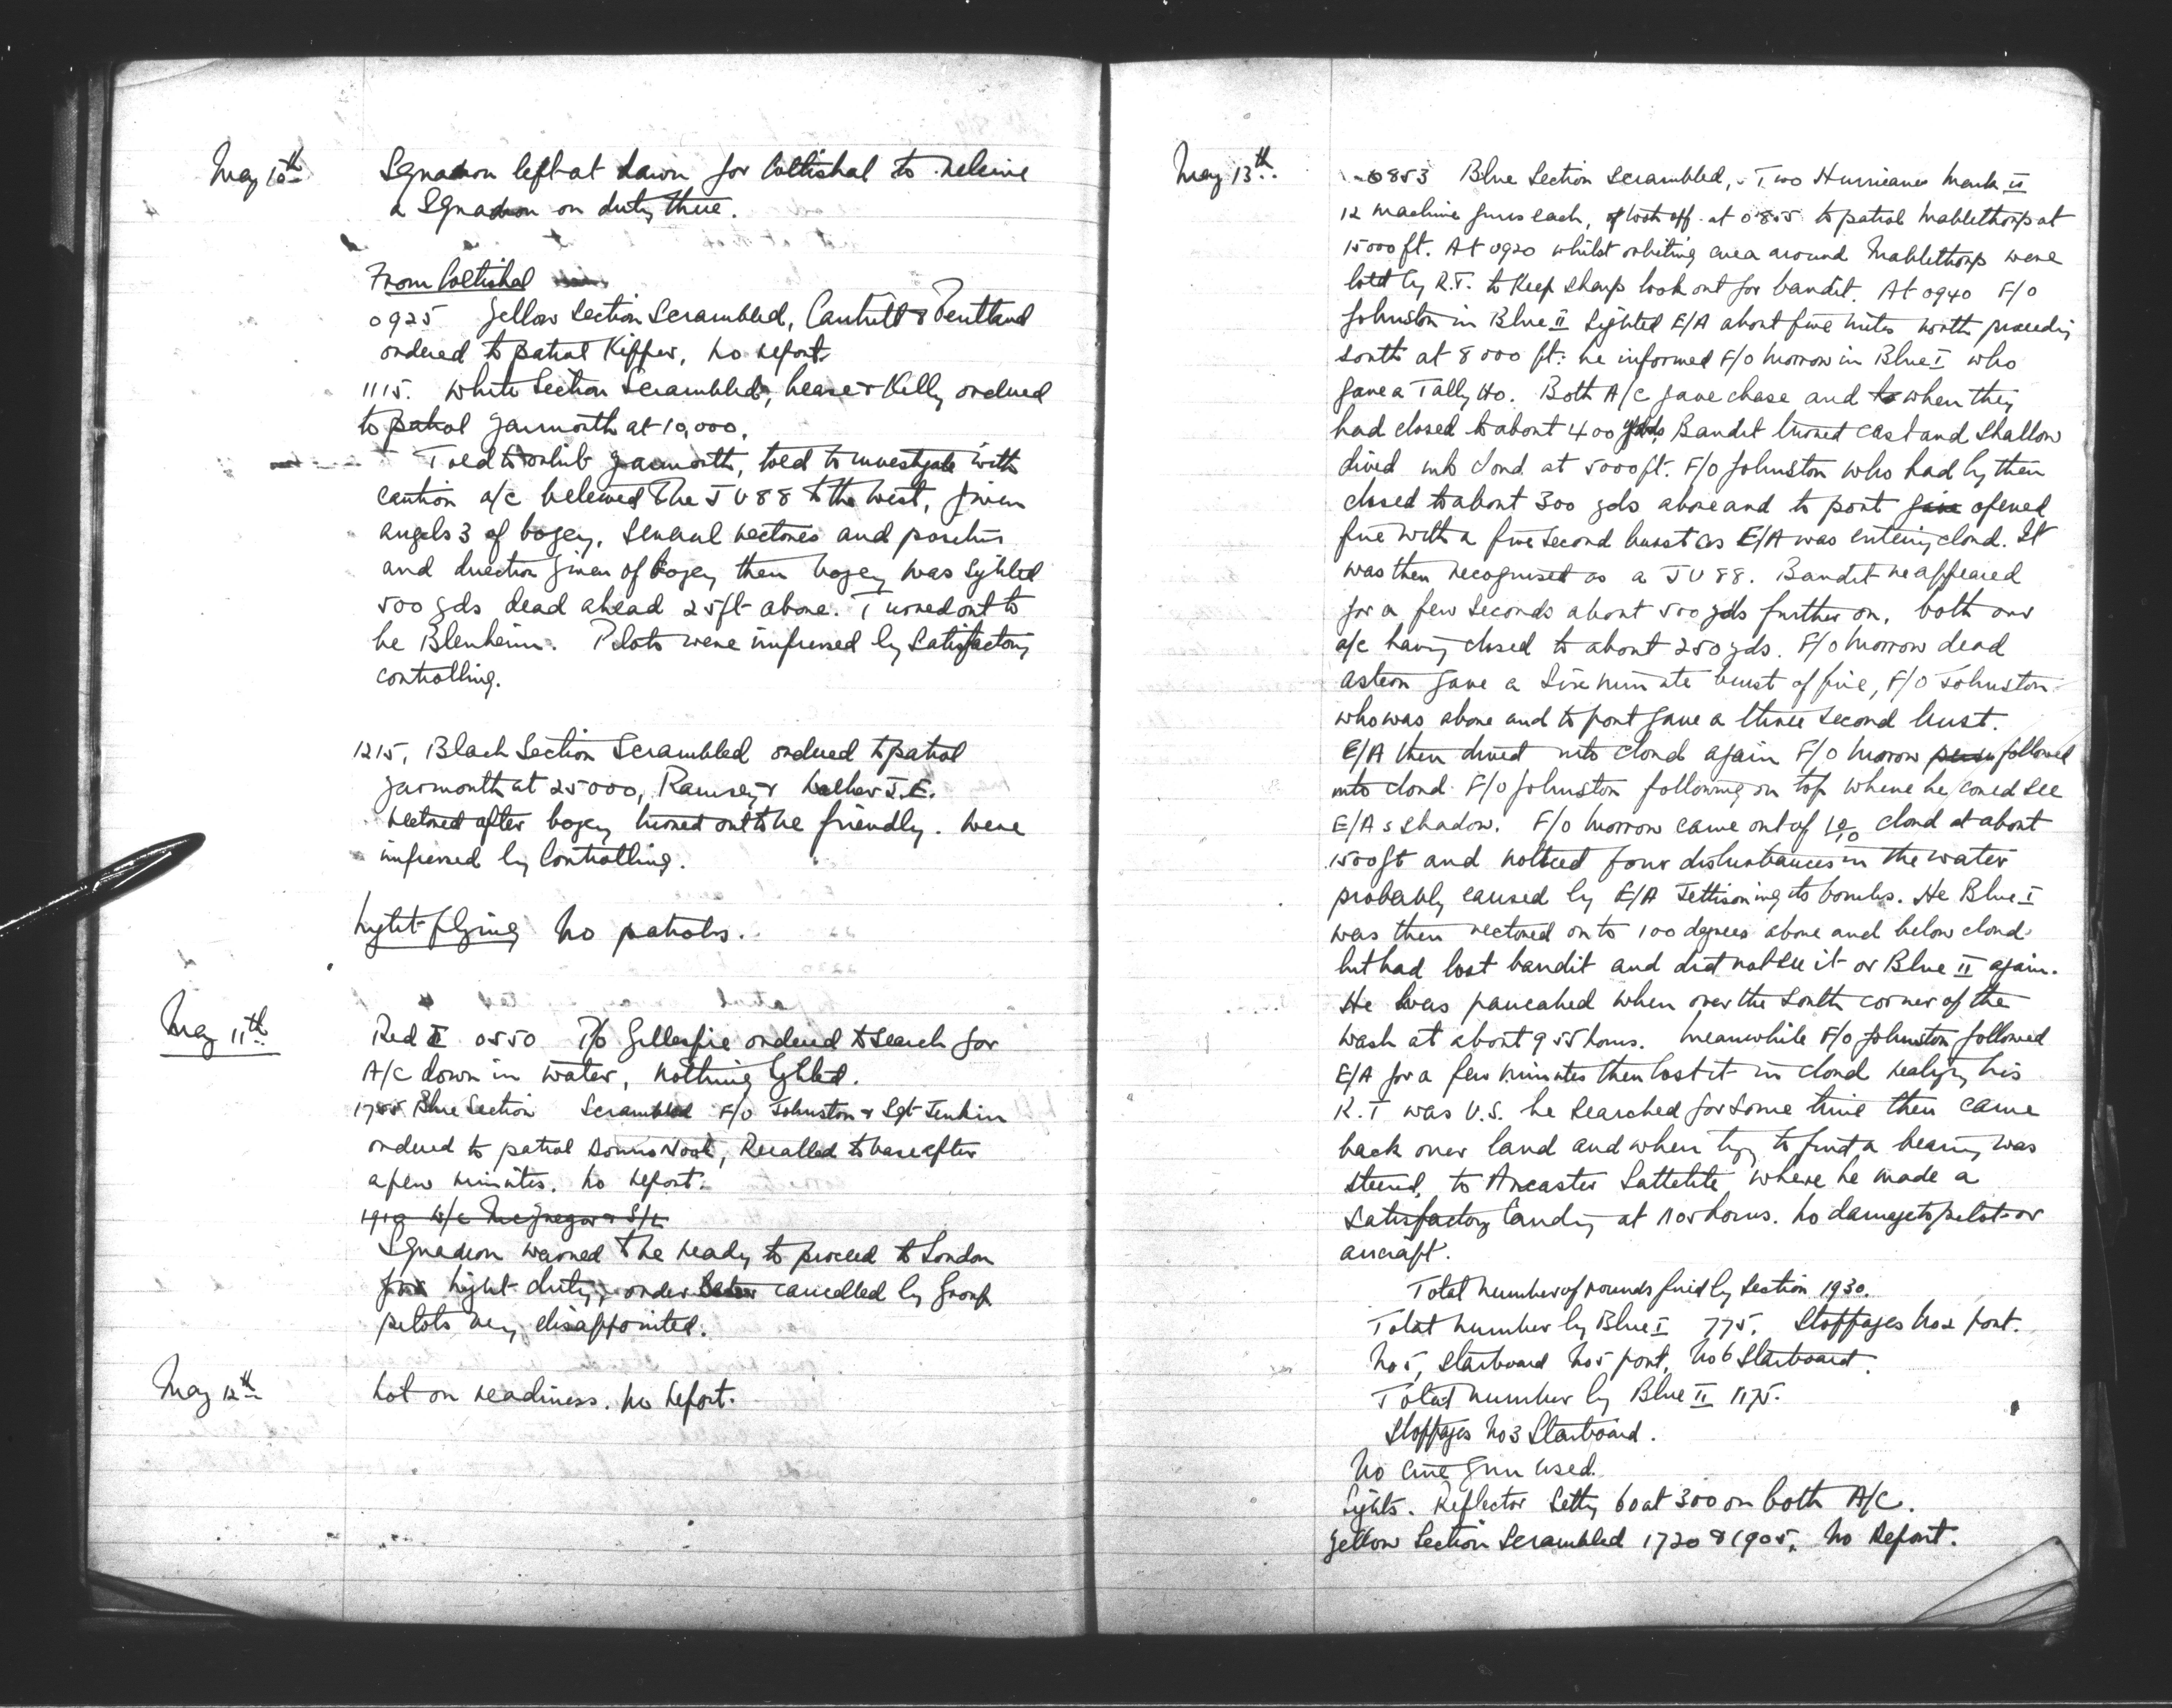 May 10th
Squadron left at dawn for Coltishal to releive
a Squadron on duty there.
From Coltishal
0925 Yellow Section Scrambled, Cantrill & Pentland
ordered to patrol Kipper, no report.
1115. White Section Scrambled, Kelly ordered
to patrol Yarmouth at 10,000.
Told to orbit Yarmouth, told to investigate with
caution a/c beleived to be JU88 to the West, given
angels 3 of bogey. Several vectores and position
and direction given of bogey then bogey was sighted
500 yds dead ahead 25ft above. Turned out to
be Blenheim. Pilots were impressed by Satisfactory
controlling.
1215, Black Section Scrambled ordered to patrol
Yarmouth at 25000, Ramsey & Walker J.E.
vectored after bogey turned out to be friendly. Were
impressed by Controlling.
Night flying No patrols.
May 11th
Red II 0550 P/O Gillespie ordered to search for
A/C down in water, nothing sighted.
1755 Blue Section Scrambled F/O Johnston & Sgt Jenkin
ordered to patrol Donna Nook, Recalled to base after
a few minutes. No report.
1910 W/C McGregor & S/L
Squadron warned to be ready to proceed to London
for night duty, order later cancelled by Group
pilots very disappointed.
May 12th
Not on readiness. No report.
May 13th
0853 Blue Section Scrambled, Two Hurricanes Mark II
12 machine guns each, took off at 0855 to patrol Mablethorp at
15000 ft. At 0920 whilst orbiting area around Mablethorp were
told by R.T. to keep sharp look out for bandit. At 0940 F/O
Johnston in Blue II sighted E/A about five miles north proceeding
south at 8000 ft: he informed F/O Morrow in Blue I who
gave a Tally Ho. Both A/C gave chase and to when they
had closed to about 400 yds Bandit turned east and shallow
dived into cloud at 5000 ft. F/O Johnston who had by then
closed to about 300 yds above and to port opened
fire with a five second burst as E/A was entering cloud. It
was then recognised as a JU 88. Bandit reappeared
for a few seconds about 500 yds further on, both our
a/c having closed to about 250 yds. F/O Morrow dead
astern gave a minute burst of fire, F/O Johnston
who was above and to port gave a three second burst.
E/A then dived into cloud again F/O Morrow followed
into cloud F/O Johnston following on top where he coued see
E/A s shadow. F/O Morrow came out of 10/10 cloud at about
1500ft and noticed four disturbances in the water
probably caused by E/A Jettisoning its bombs. He Blue I
was then vectored on to 100 degrees above and below cloud
but had lost bandit and did not see it or Blue II again.
He was pancaked when over the South corner of the
Wash at about 955 hours. Meanwhile F/O Johnston followed
E/A for a few minutes then lost it in cloud his
R.T was U.S. he searched for some time then came
back over land and when try to find a bearing was
steered, to Ancaster Sattelite where he made a
Satisfactory landing at 1105 hours. No damage to pilot or
aircraft.
Total number of rounds fired by section 1930.
Total number by Blue I 775. Stoppages No 2 port.
No 5, Starboard No 5 port, No 6 Starboard.
Total number by Blue II 1175.
Stoppages No 3 Starboard.
No cine gun used.
Sights. Reflector Setting 60 at 300 on both A/C.
Yellow Section Scrambled 1720 & 1905. No Report.